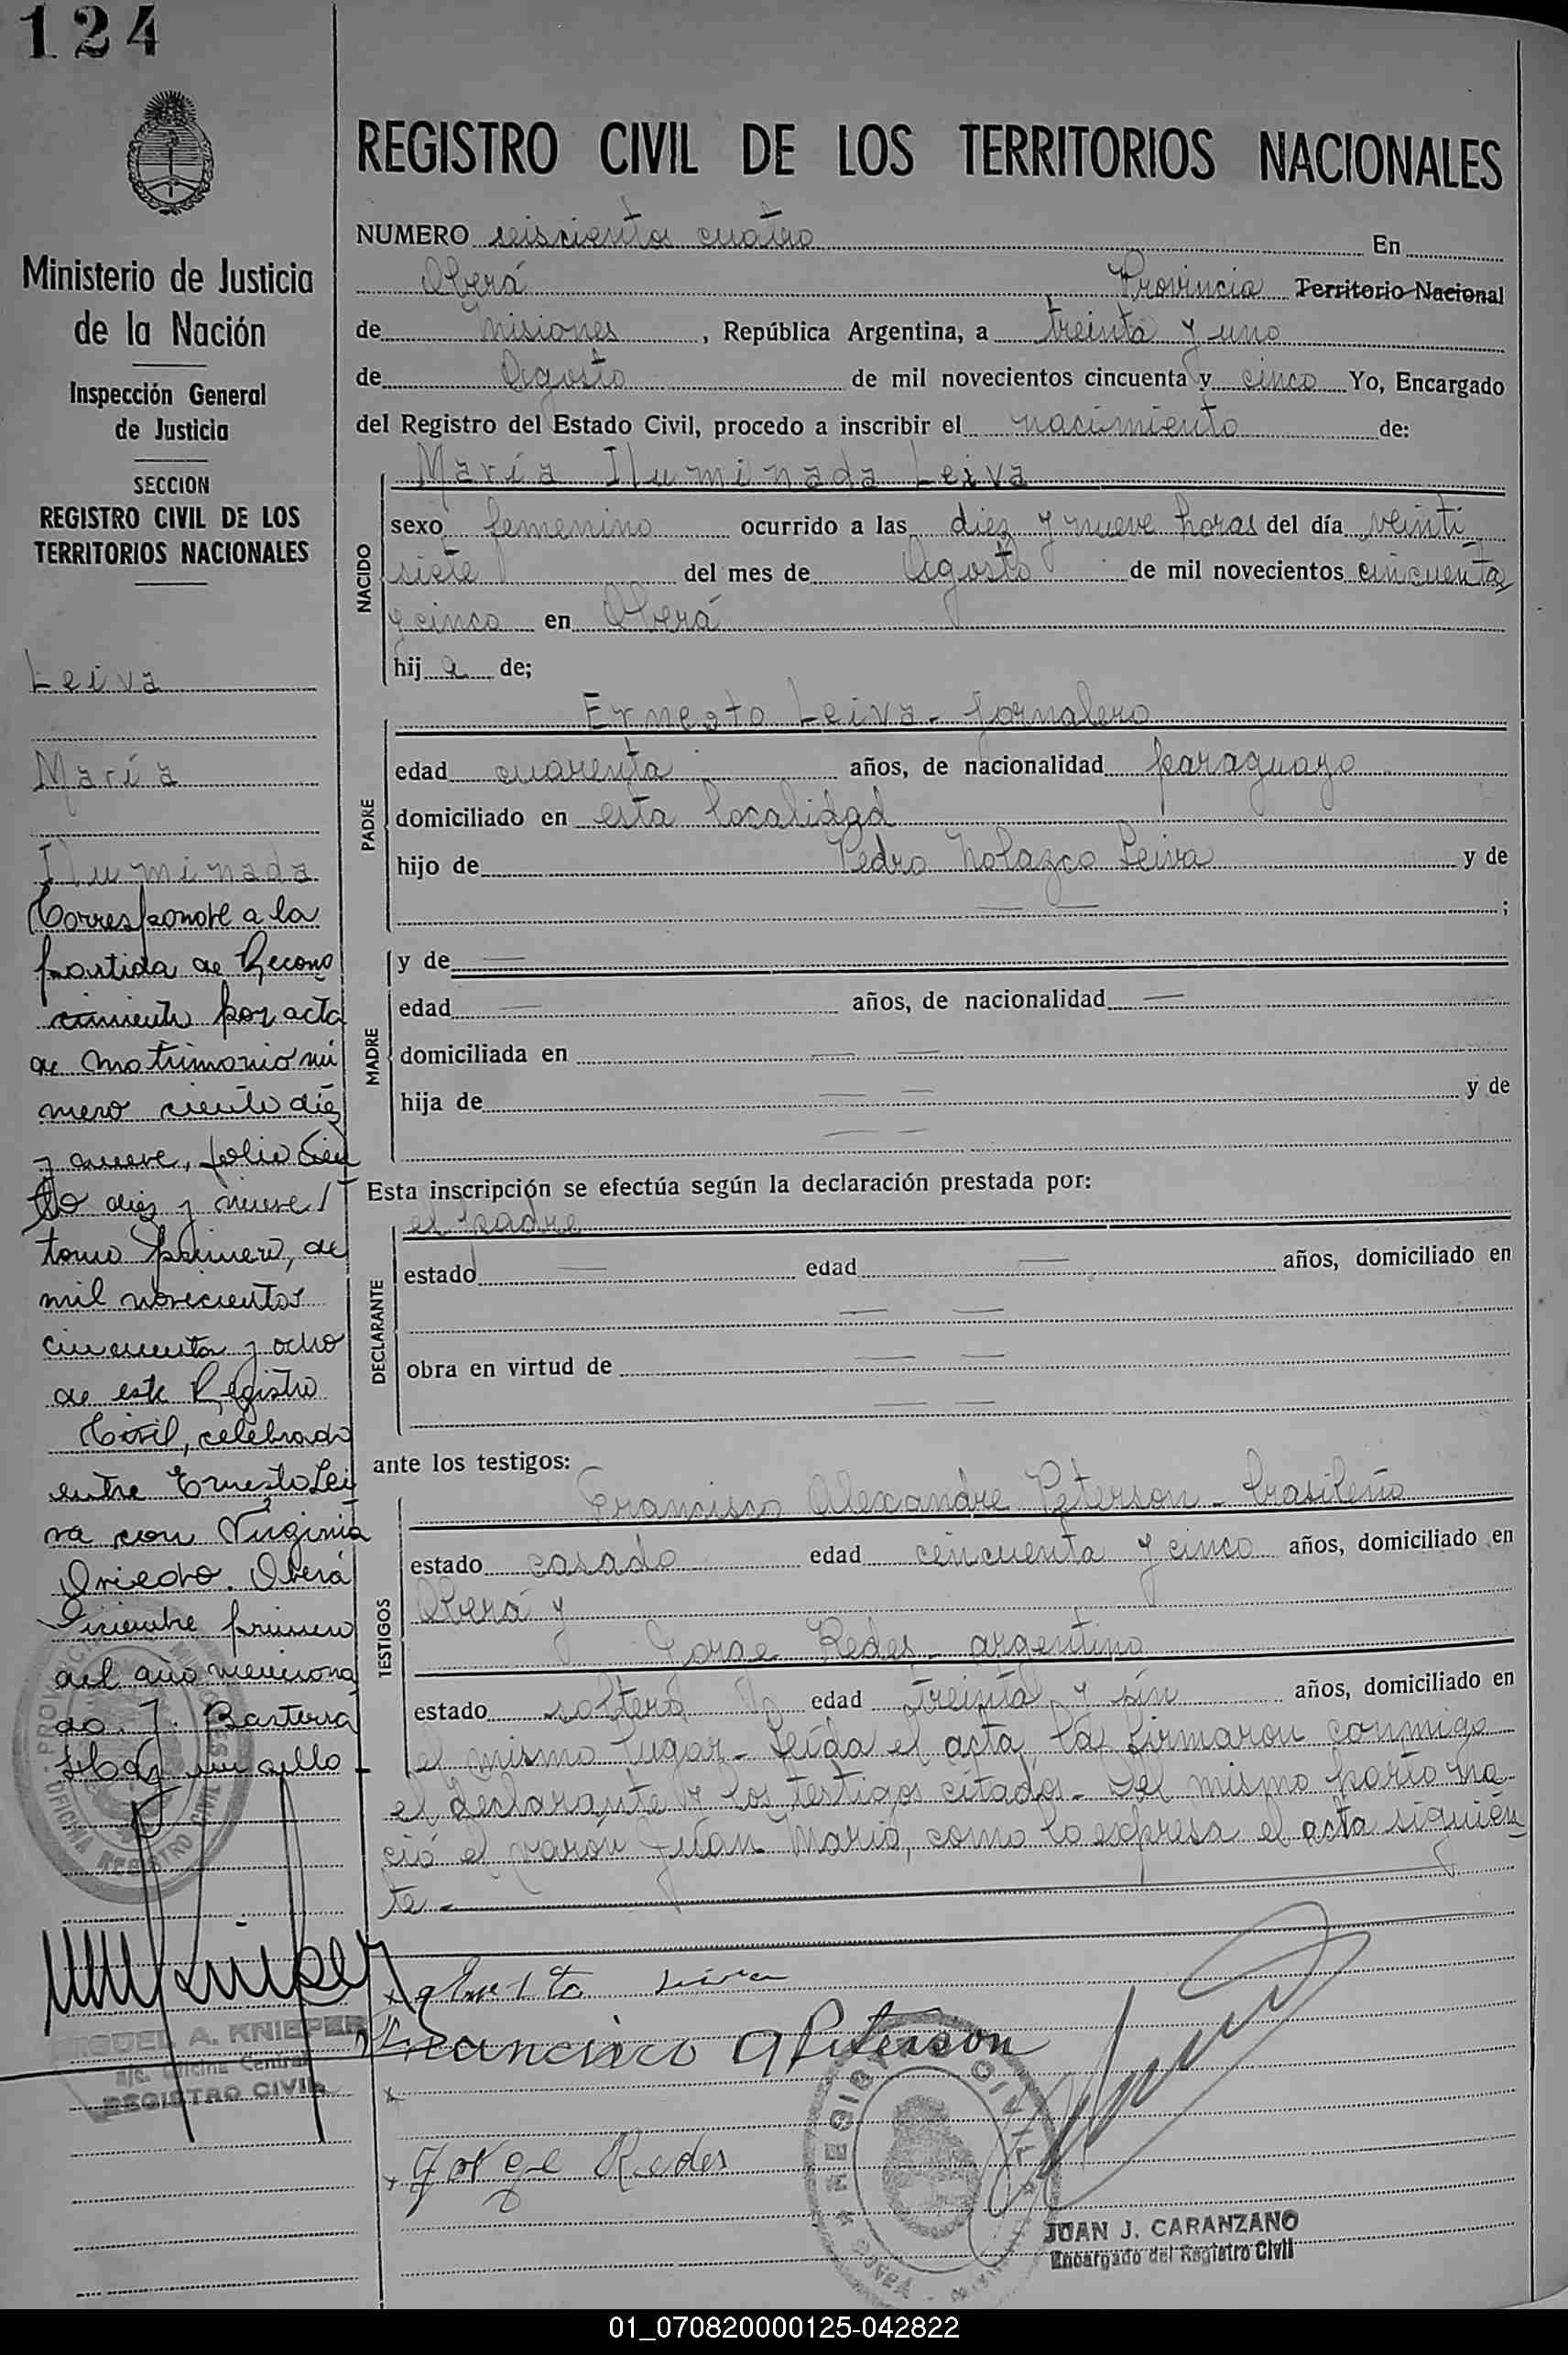 124
Ministerio de Justicia
de la Nación
Inspección General
de Justicia
SECCION
REGISTRO CIVIL DE LOS
TERRITORIOS NACIONALES
Leiva
María
Iluminada
Corresponde a la
partida de Recono
cimiento por acta
de matrimonio nú
mero ciento diez
y nueve, folio cien
to diez y nueve,
tomo primero, de
mil novecientos
cincuenta y ocho
de este Registro
Civil, celebrado
entre Ernesto Lei
va con Virginia
Oviedo. Oberá
Diciembre primero
del año menciona
do. J. Basterra
Hay un sello
MIGUEL A. KNIEPER
a/c. Oficina Central
REGISTRO CIVIL
REGISTRO CIVIL DE LOS TERRITORIOS NACIONALES
NUMERO seiscientos cuatro En
Oberá Provincia Territorio Nacional
de Misiones, República Argentina, a treinta y uno
de Agosto de mil novecientos cincuenta y cinco Yo, Encargado
del Registro del Estado Civil, procedo a inscribir el nacimiento de:
NACIDO
María Iluminada Leiva
sexo femenino ocurrido a las diez y nueve horas del día veinti
siete del mes de Agosto de mil novecientos cincuenta
y cinco en Oberá
hija de;
PADRE
Ernesto Leiva - jornalero
edad cuarenta años, de nacionalidad paraguayo
domiciliado en esta localidad
hijo de Pedro Nolazco Leiva y de
— — ;
MADRE
y de —
edad — años, de nacionalidad —
domiciliada en — —
hija de — — y de
— —
Esta inscripción se efectúa según la declaración prestada por:
DECLARANTE
el padre
estado — edad — años, domiciliado en
— —
obra en virtud de — —
— —
ante los testigos:
TESTIGOS
Francisco Alexandre Peterson - brasileño
estado casado edad cincuenta y cinco años, domiciliado en
Oberá y
Jorge Redes - argentino
estado soltero edad treinta y sin años, domiciliado en
el mismo lugar - Leída el acta, la firmaron conmigo
el declarante y los testigos citados - Del mismo parto na
ció el varón Juan Mario, como lo expresa el acta siguien
te -
Ernesto Leiva
Francisco A Peterson
Jorge Redes
JUAN J. CARANZANO
Encargado del Registro Civil
01_070820000125-042822